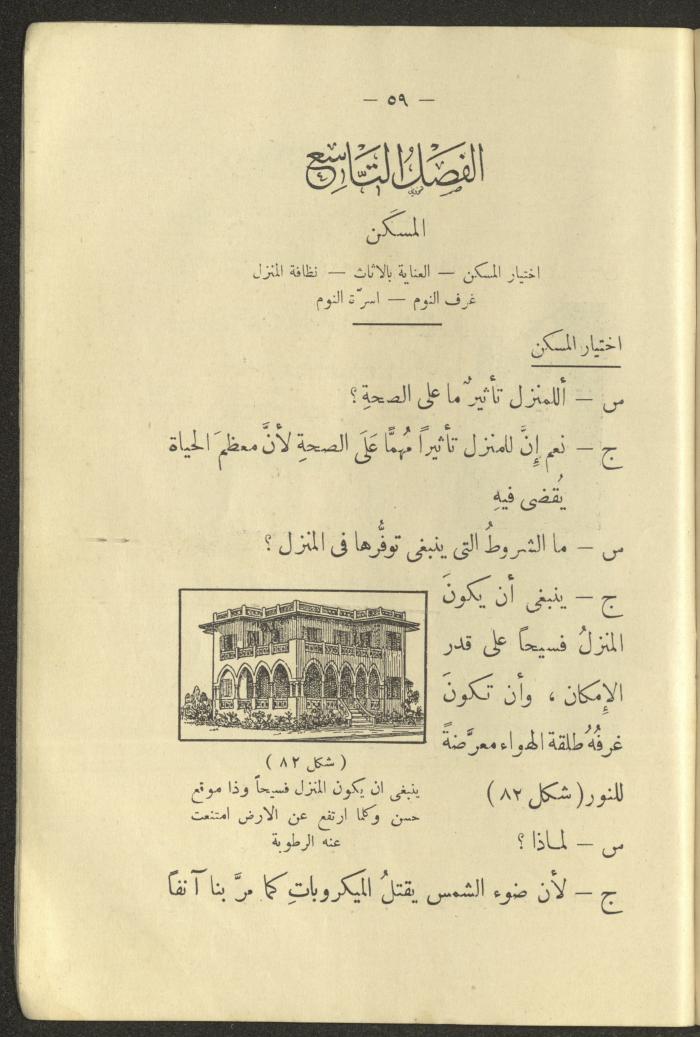 — ٥٩ —
الفَصْلُ التَّاسِع
المسكَن
اختيار المسكن — العناية بالاثاث — نظافة المنزل
غرف النوم — اسرّة النوم
اختيار المسكن
س — أللمنزل تأثيرٌ ما على الصحةِ ؟
ج — نعم إِنَّ للمنزل تأثيراً مُهمًّا عَلَى الصحةِ لأنَّ معظمَ الحياة
يُقضى فيهِ
س — ما الشروطُ التى ينبغى توفُّرها فى المنزل ؟
ج — ينبغى أن يكونَ
المنزلُ فسيحاً على قدر
الإِمكان ، وأن تكونَ
غرفُهُ طلقة الهواء معرَّضةً
للنور ( شكل ٨٢ )
( شكل ٨٢ )
ينبغى ان يكون المنزل فسيحاً وذا موقع
حسن وكلما ارتفع عن الارض امتنعت
عنه الرطوبة
س — لماذا ؟
ج — لأن ضوء الشمس يقتلُ الميكروباتِ كما مرَّ بنا آنفاً